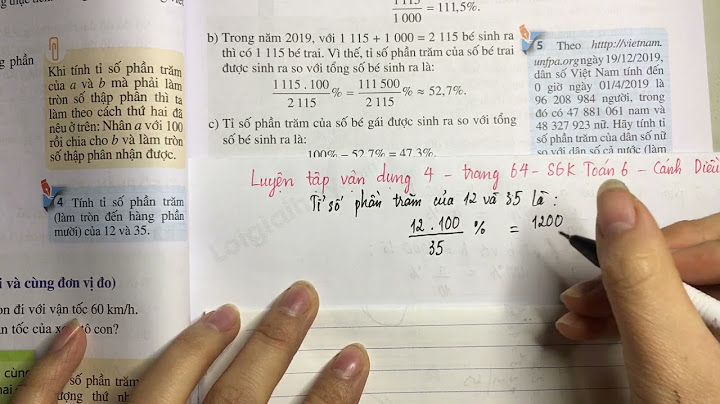 1115
1 000
= 111,5%.
b) Trong năm 2019, với 1 115 + 1 000 = 2 115 bé sinh ra
thì có 1 115 bé trai. Vì thế, tỉ số phần trăm của số bé trai
được sinh ra so với tổng số bé sinh ra là:
1 115 . 100
2 115
% =
111 500
2 115
% ≈ 52,7%.
c) Tỉ số phần trăm của số bé gái được sinh ra so với tổng
số bé sinh ra là:
100% – 52,7% = 47,3%.
g phần
Khi tính tỉ số phần trăm
của a và b mà phải làm
tròn số thập phân thì ta
làm theo cách thứ hai đã
nêu ở trên: Nhân a với 100
rồi chia cho b và làm tròn
số thập phân nhận được.
4 Tính tỉ số phần trăm
(làm tròn đến hàng phần
mười) của 12 và 35.
5 Theo htttp://vietnam.
unfpa.org ngày 19/12/2019,
dân số Việt Nam tính đến
0 giờ ngày 01/4/2019 là
96 208 984 người, trong
đó có 47 881 061 nam và
48 327 923 nữ. Hãy tính tỉ
số phần trăm của dân số nữ
so với dân số cả nước (làm
Luyện tập vận dụng 4 - trang 64 - SGK Toán 6 - Cánh Diều
Tỉ số phần trăm của 12 và 35 là :
12 . 100
35
% =
1200
i và cùng đơn vị đo)
on đi với vận tốc 60 km/h.
n tốc của xe ô tô con?
cùn
số phần trăm
ượng thứ nh